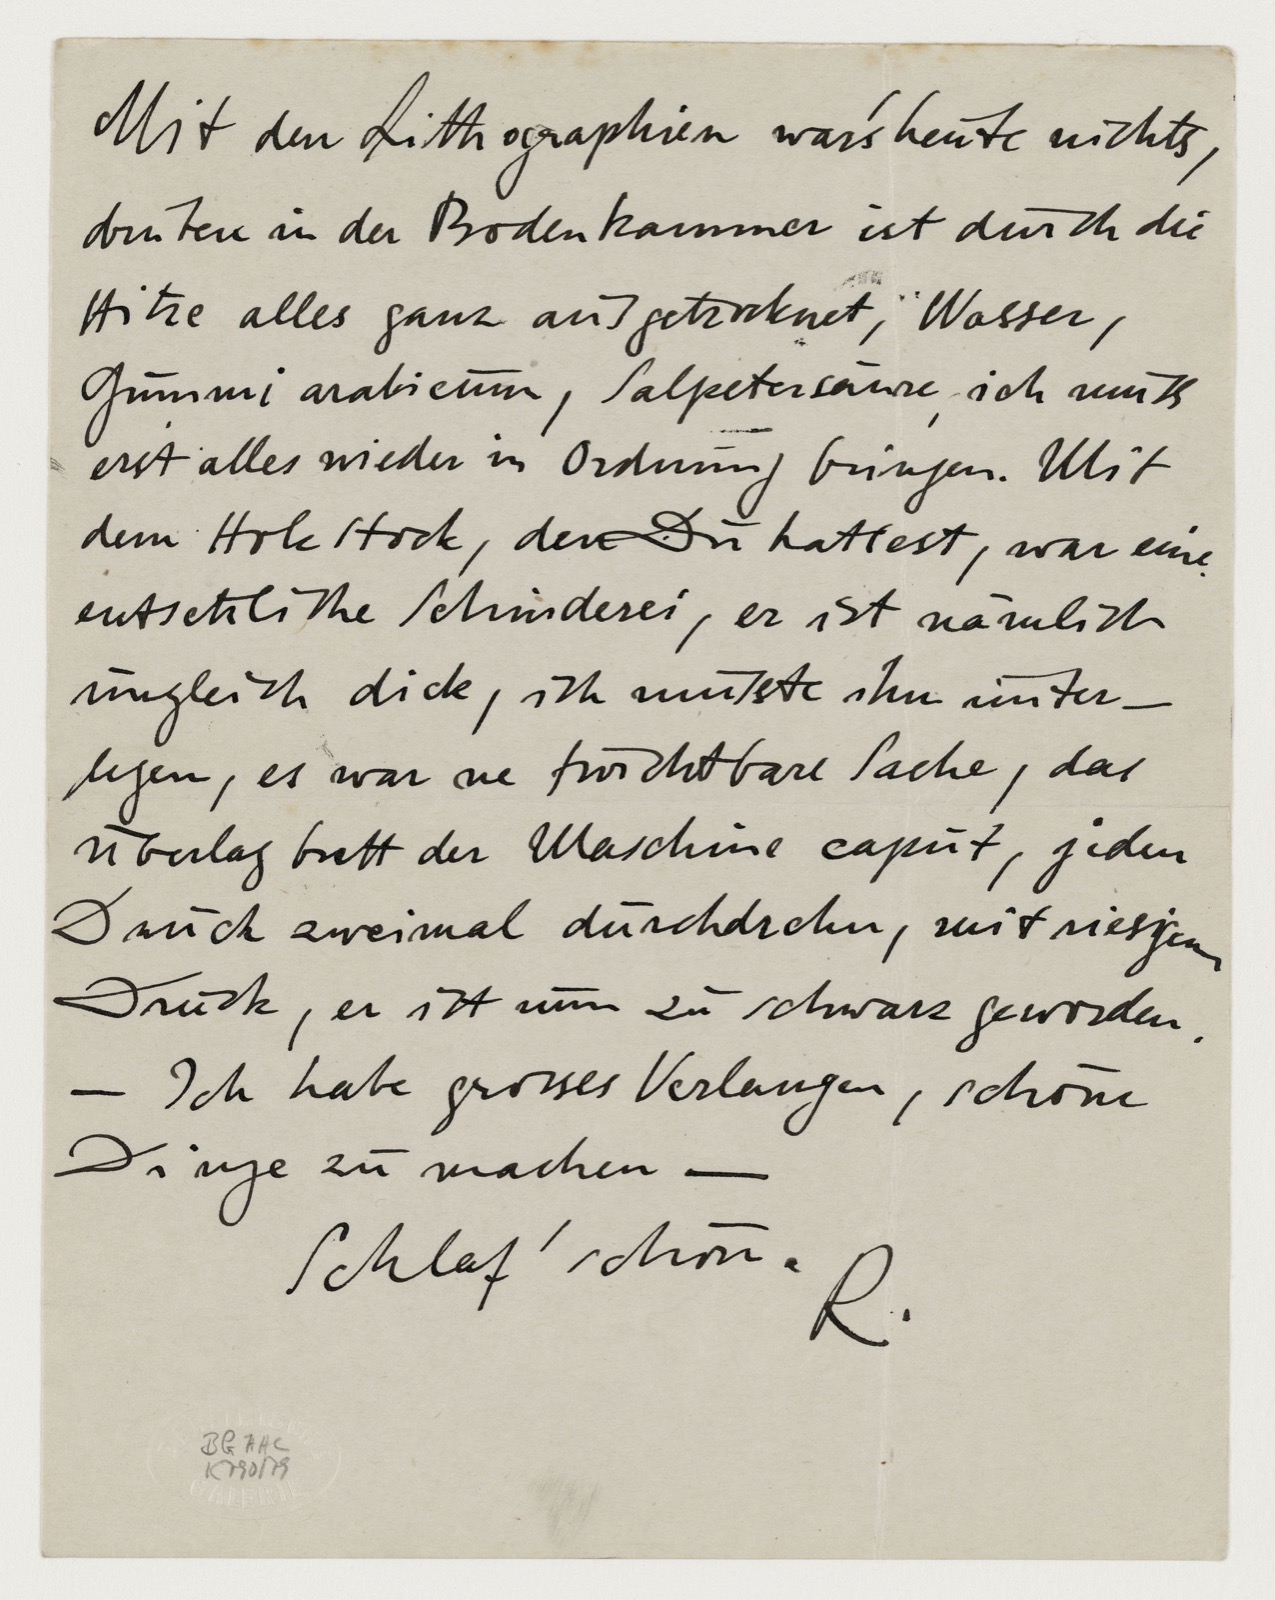 Mit den Lithographien war's heute nichts,
drunten in der Bodenkammer ist durch die
Hitze alles ganz ausgetrocknet, Wasser,
Gummi arabicum, Salpetersäure, ich muß
erst alles wieder in Ordnung bringen. Mit
dem Holzstock, den Du hattest, war eine
entsetzliche Schinderei, er ist nämlich
ungleich dick, ich musste ihn unter-
legen, es war ne furchtbare Sache, das
Überlagbrett der Maschine caput, jeden
Druck zweimal durchdrehn, mit riesigem
Druck, er ist nun zu schwarz geworden.
— Ich habe grosses Verlangen, schöne
Dinge zu machen —
Schlaf' schön.
R.
BG HHC
K 790/79